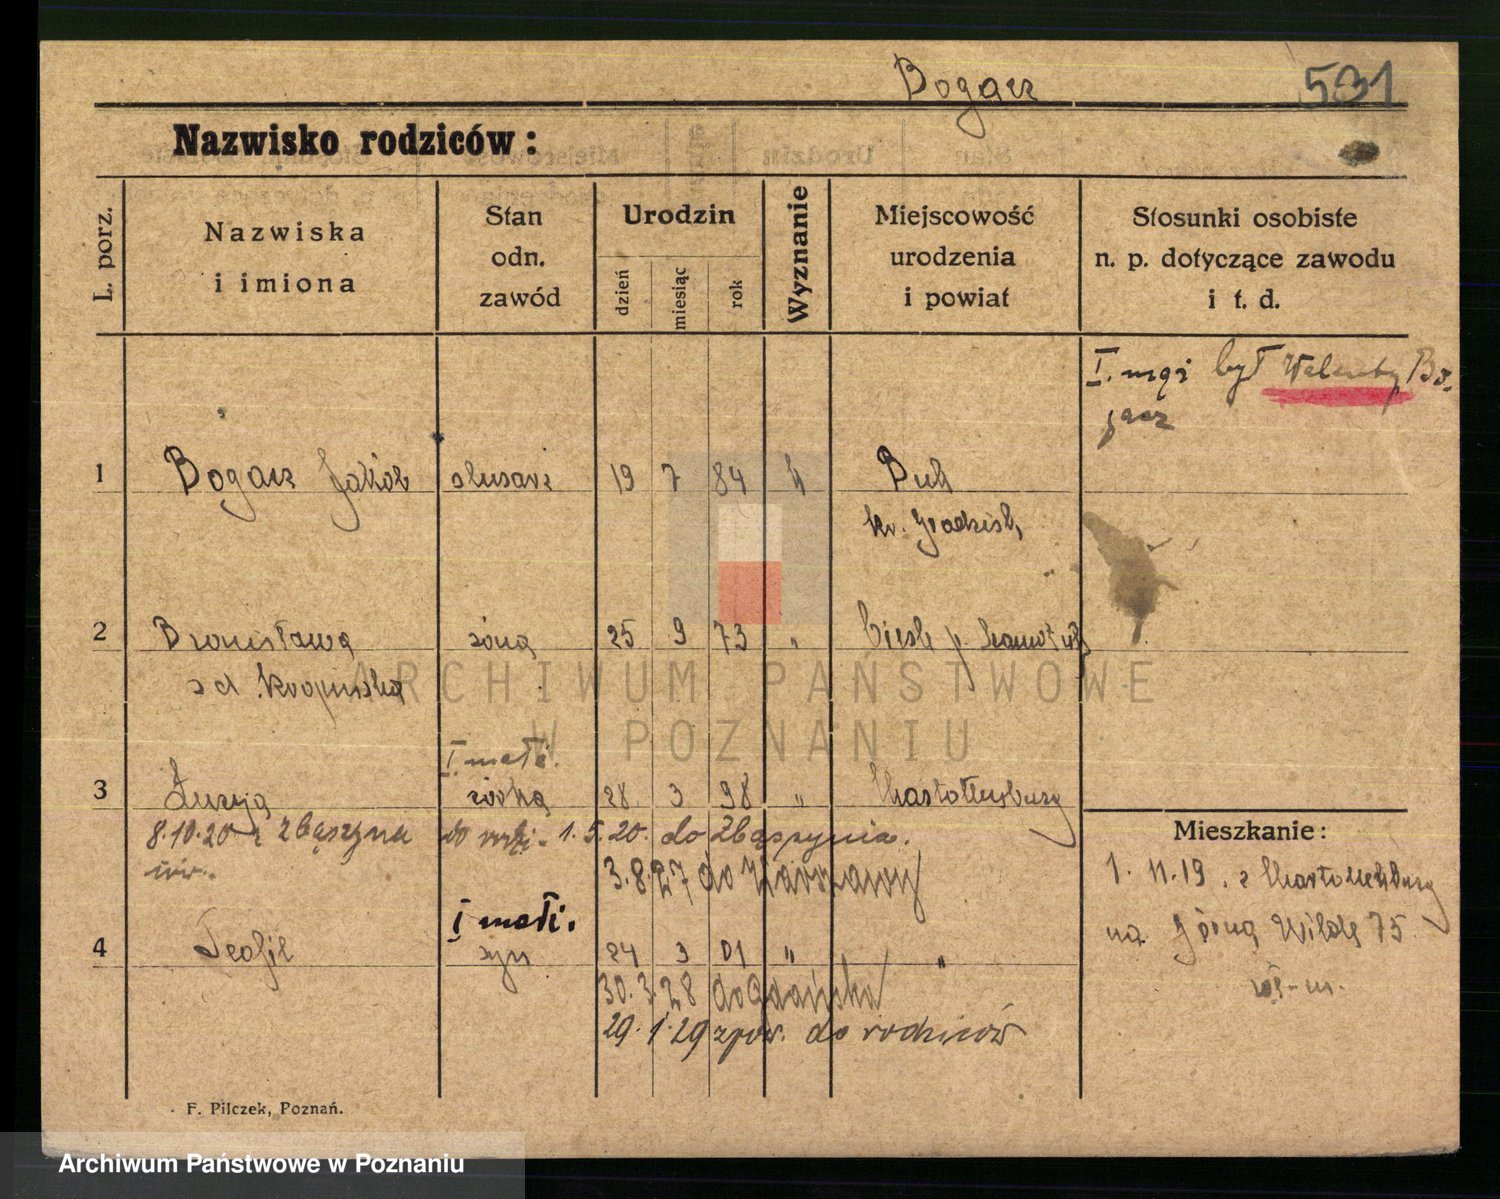 Bogacz
531
Nazwisko rodziców:
L. porz.
Nazwiska
i imiona
Stan
odn.
zawód
Urodzin
dzień
miesiąc
rok
Wyznanie
Miejscowość
urodzenia
i powiat
Stosunki osobiste
n. p. dotyczące zawodu
i t. d.
I. mąż był Walenty Bo-
gacz
1 Bogacz Jakób ślusarz 19 7 84 k Buk
kr. Grodzisk
2 Bronisława żona 25 9 73 "
zd.
I małż.
3 Łucyja córka 28 3 98 " Charlottenburg
8.10.20 z Zbąszynia do 1.5.20. do Zbąszynia.
3.8.27 do Warszawy
I małż.
4 Teofil syn 24 3 01 " "
30.3.28 do Gdańska
29.1.29 zpow. do rodziców
Mieszkanie:
1. 11.19. z Charlottenburg
na Górną Wildę 75
F. Pilczek, Poznań.
ARCHIWUM PAŃSTWOWE
W POZNANIU
Archiwum Państwowe w Poznaniu